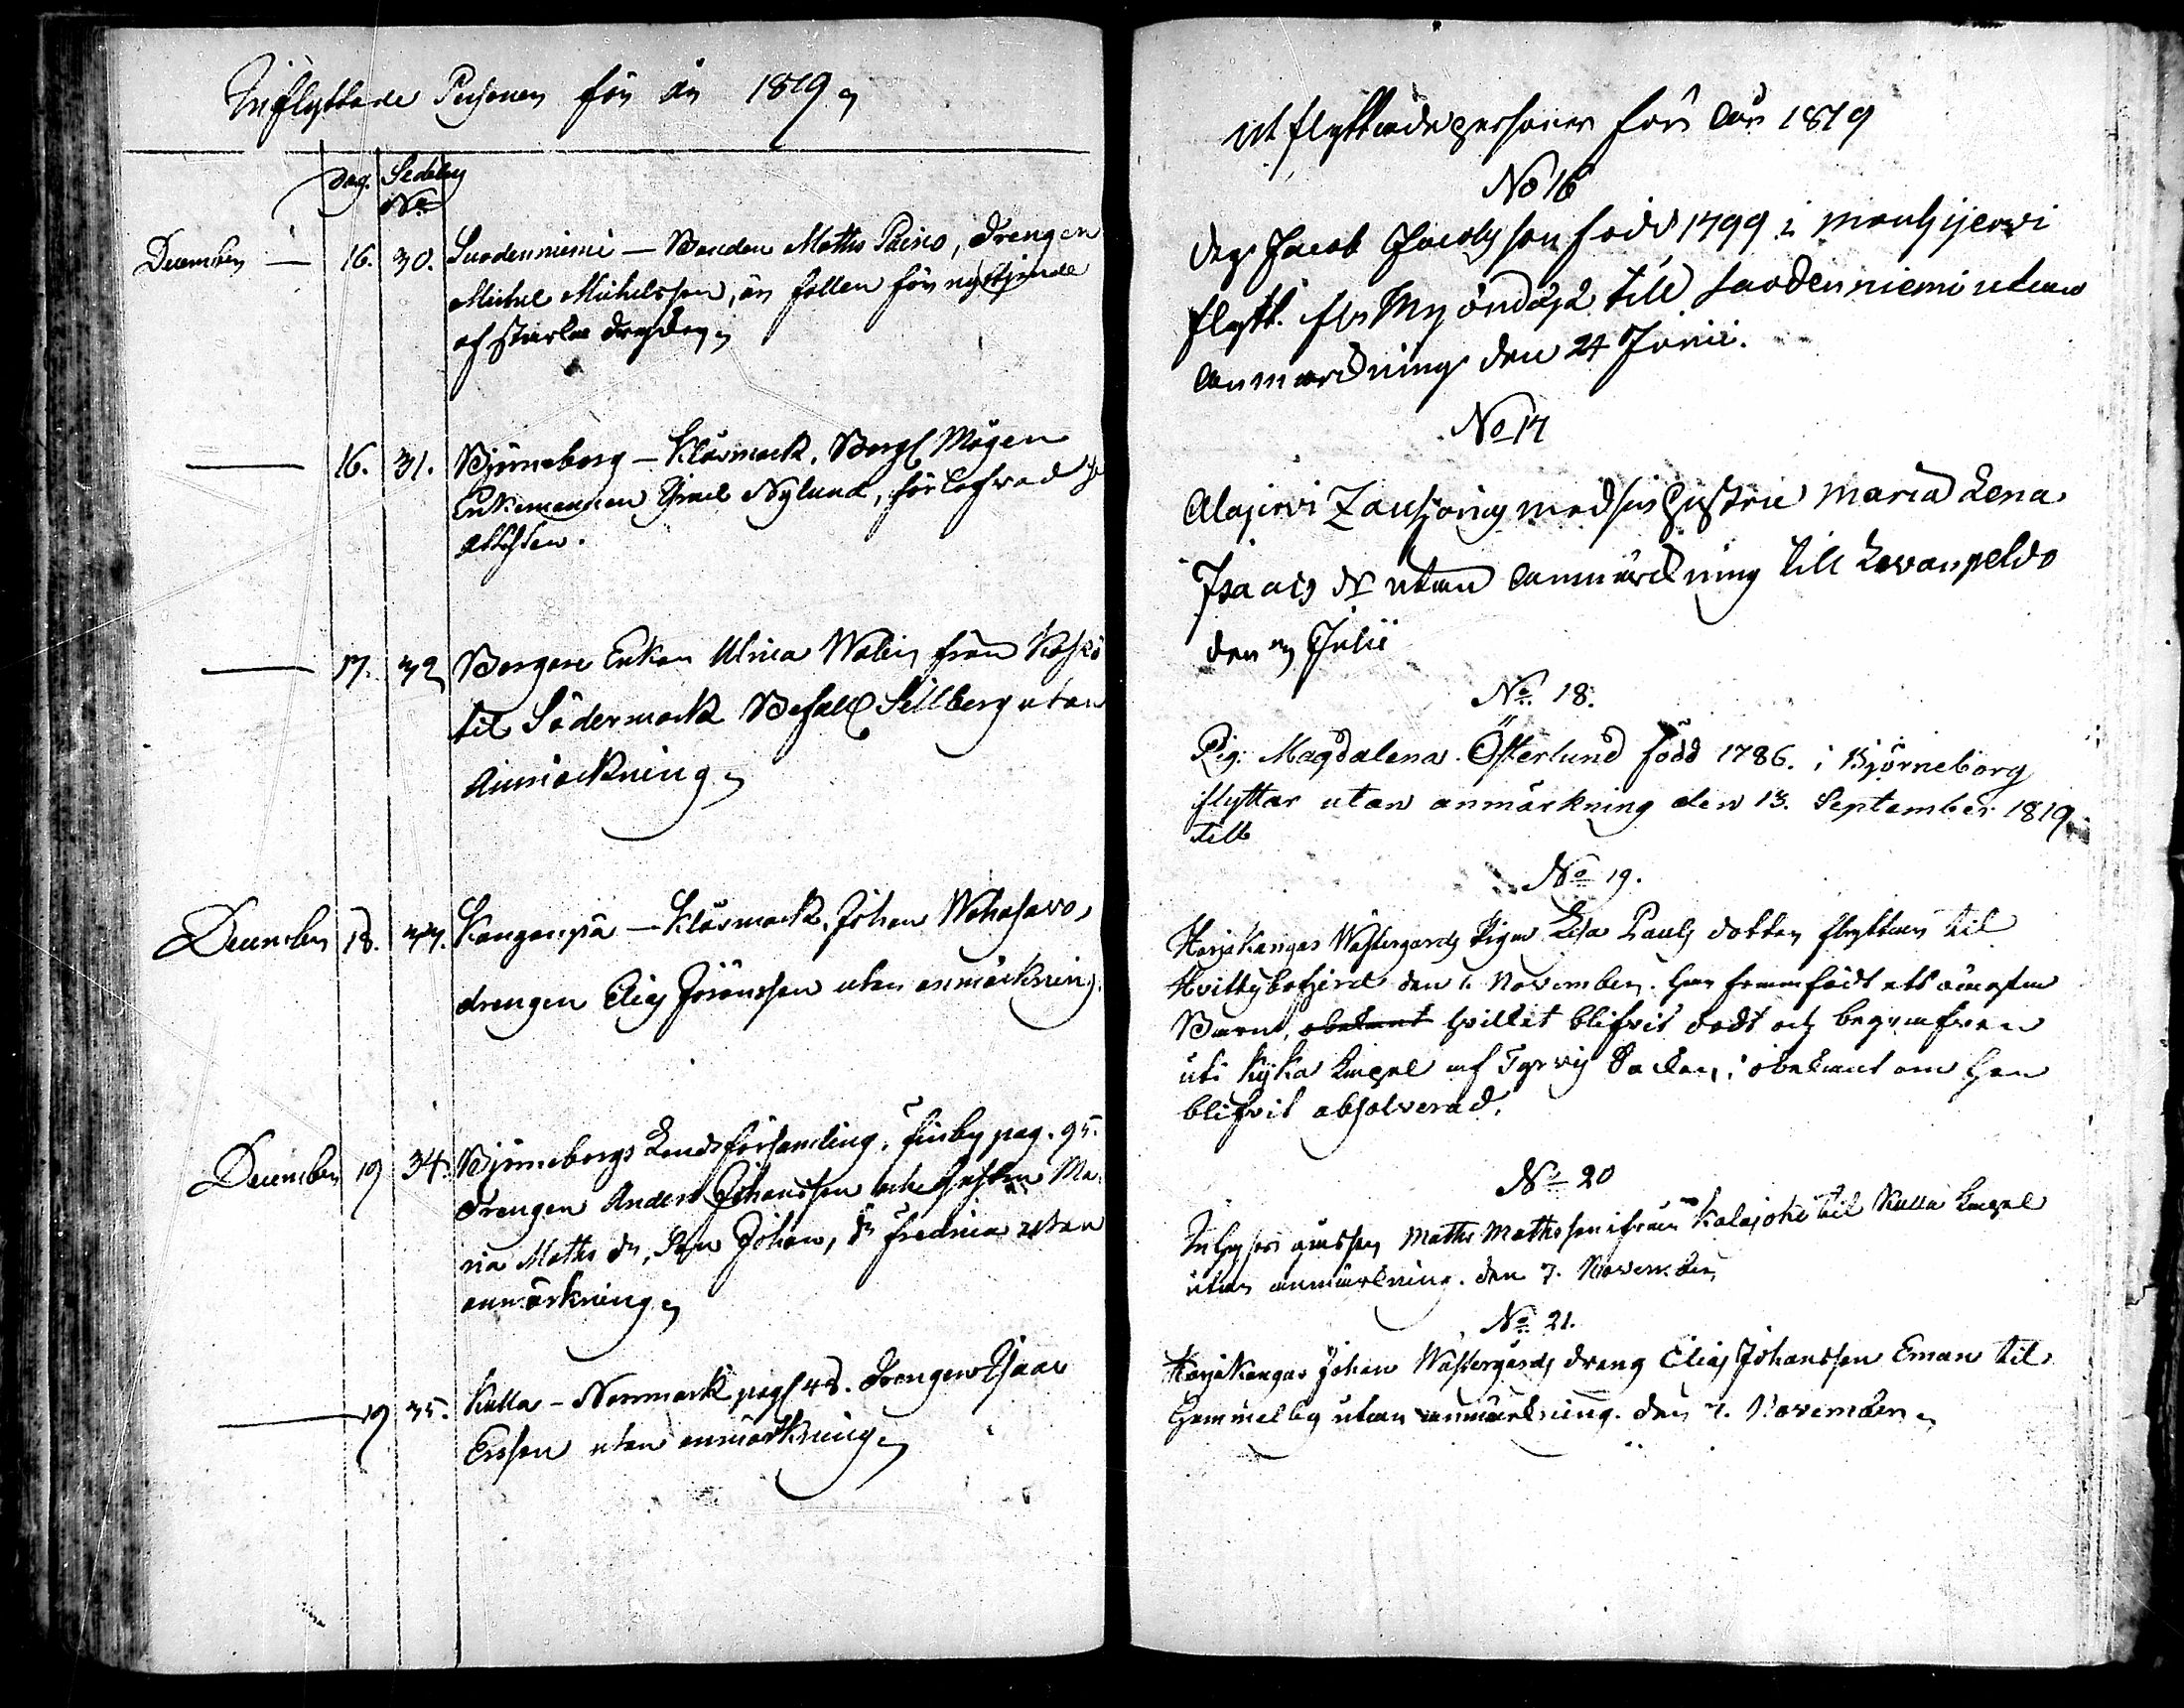 Inflyttade Personer för år 1819
Dag. Sedeln
No
December — 16. 30. Suodenniemi — Bonden Matths Paino, Drengen
Michel Michelsson, är fallen för nyttjande
af starka drycker
— 16. 31. Björneborg — Klåsmark, Bergs Mågen
Enkemannen Nylund, för
attesten.
— 17. 32 Borgare Enkan Ulrica Walin från
til Södermark Sillberg utan
Anmärkning
December 18. 33. Kangenpä — Klåsmark, Johan Wahasaro,
drengen Elias Jöransson utan anmärkning.
December 19 34. Björneborgs Landsförsamling, Finby pag. 95.
Drengen Anders Johansson och Hustrun Ma-
ria Matts dr, Son Johan, dr Fredrica utan
anmärkning
— 19 35. Kulla — Norrmark pag 48. Drengen Isaac
Ersson utan anmärkning
Utflyttade personer för år 1819
No 16
Drg. Jacob Jacobsson född 1799 i Mouhijervi
flytt. till Suodenniemi utan
Anmärckning den 24 Junii.
No 17
Alajervi med sin Hustru Maria Lena
Isaacs dr utan anmärckning till Levanpeldo
den Julii
No 18.
Pig. Magdalena Österlund född 1786. i Björneborg
flyttar utan anmärkning den 13. September 1819
till
No 19.
Harjakangas Wästergårds Pigan Lisa Pauls dotter flyttar til
Hvittisbofjerd den 1. November. har framfödt ett oäckta
Barn, obekant hvilket blifvit dödt och begrafven
uti Kjka Capel af Tyrvis Socken, obekant om hon
blifvit absolverad.
No 20
Matts Mattsson ifrån Kalajoki til Kulla Capel
utan anmärkning. den 7. November
No 21.
Harjakangas Johan Wästergårds dräng Elias Johansson Eman til
Gammelby utan anmärckning. den 7. November